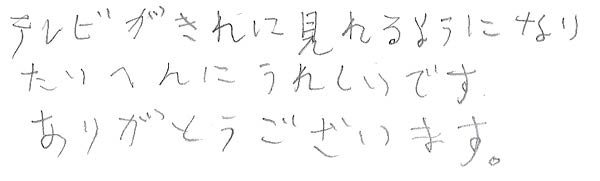 テレビがきれに見れるようになり
たいへんにうれしいです
ありがとうございます。